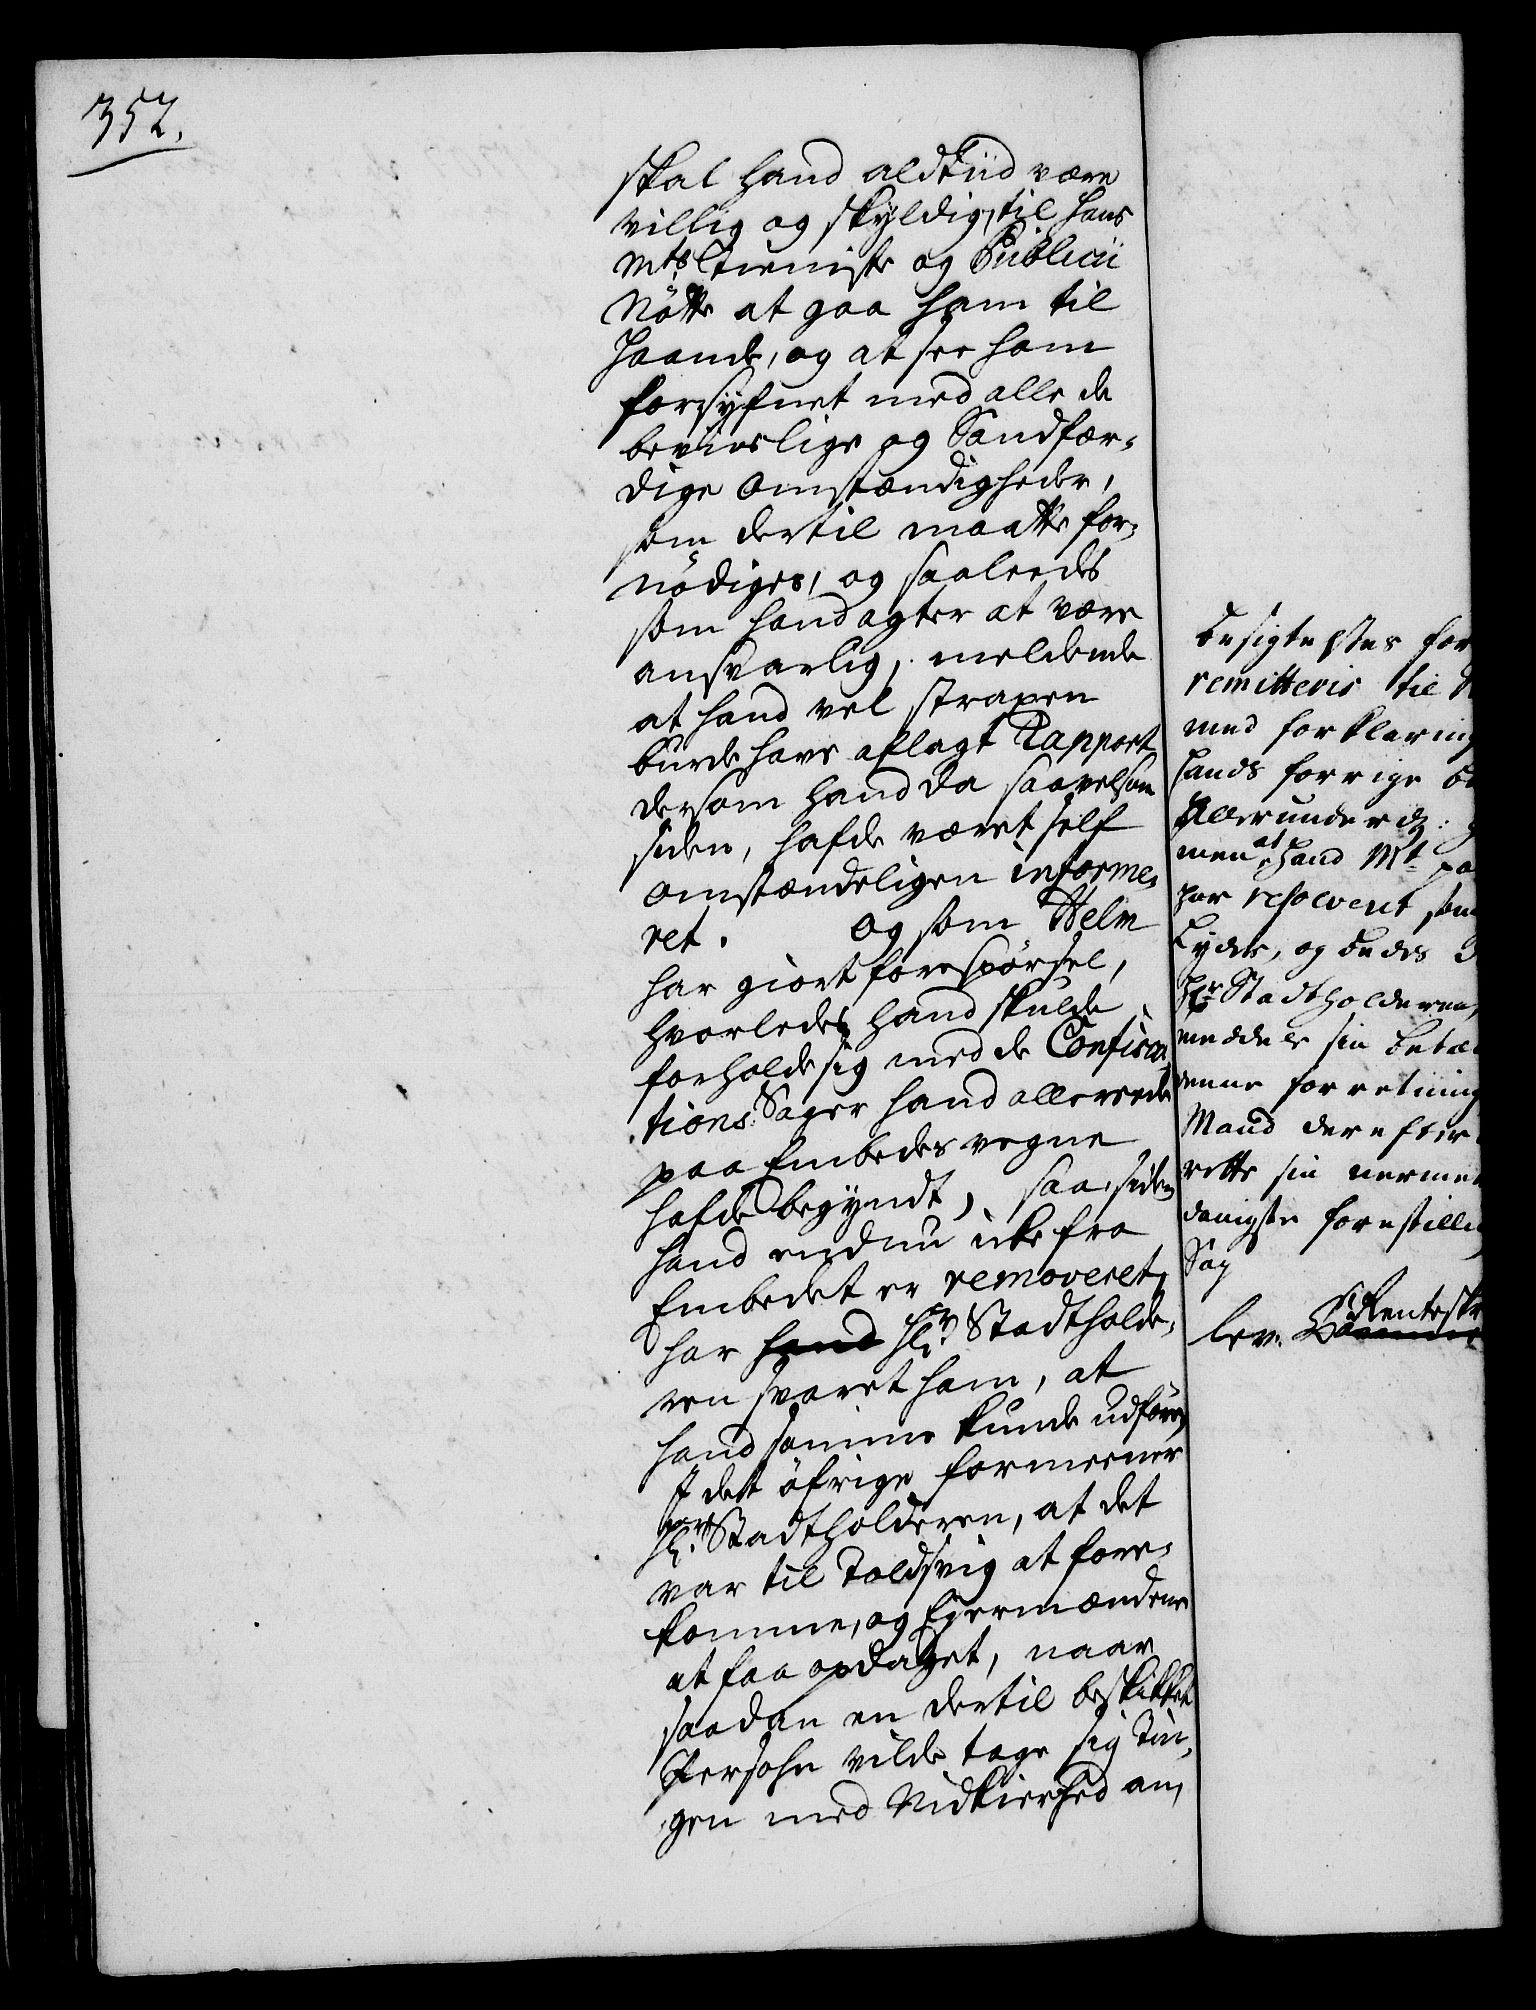 352.
skal hand aldtiid være
villig og skyldig, til Hans
Mts Tieniste og Publicii
Nötte at gaa ham til
Haande, og at see ham
forsyfnet med alle de
bevislige og Sandfær-
dige Omstændigheder,
som dertil maatte for-
nödiges, og saaleedes
som hand agter at være
ansvarlig, meldende
at hand vel straxen
burde have aflagt Rapport
dersom hand da saavelsom
siden, hafde været self
omstændeligen informe-
ret. Og som Helm
har giort forespörsel,
hvorledes hand skulde
forholde sig med de Confisca-
tions Sager hand allereede
paa Embedes vegne
hafde begyndt, saa siden
hand endnu icke fra
Embedet er removeret,
har hand Hr. Stadtholde-
ren svaret ham, at
hand samme kunde udföre,
I det öfrige formeener
Hr. Stadtholderen, at det
var til Toldsvig at fore-
komme, og Eyermændene
at faa opdaget, naar
saadan en dertil beskikket
Persohn vilde tage sig Tin-
gen med Nidkierhed an,
besigtelses for
remitteris til
med forklaring
hands forrige
Allerunderd:
men at hand Mt
har resolveret som
lyder, og bedes
Hr Stadtholderen,
meddele sin betæ
denne forretning
Mand derefter
rette sin nerme
danigste forestilli
Sag
lev. Renteskr